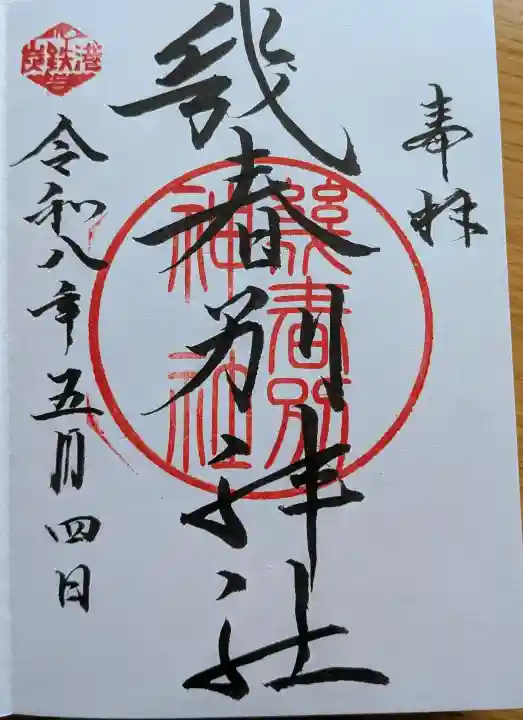 奉拝
幾春別神社
幾春別
神社
令和八年五月四日
炭鉄港